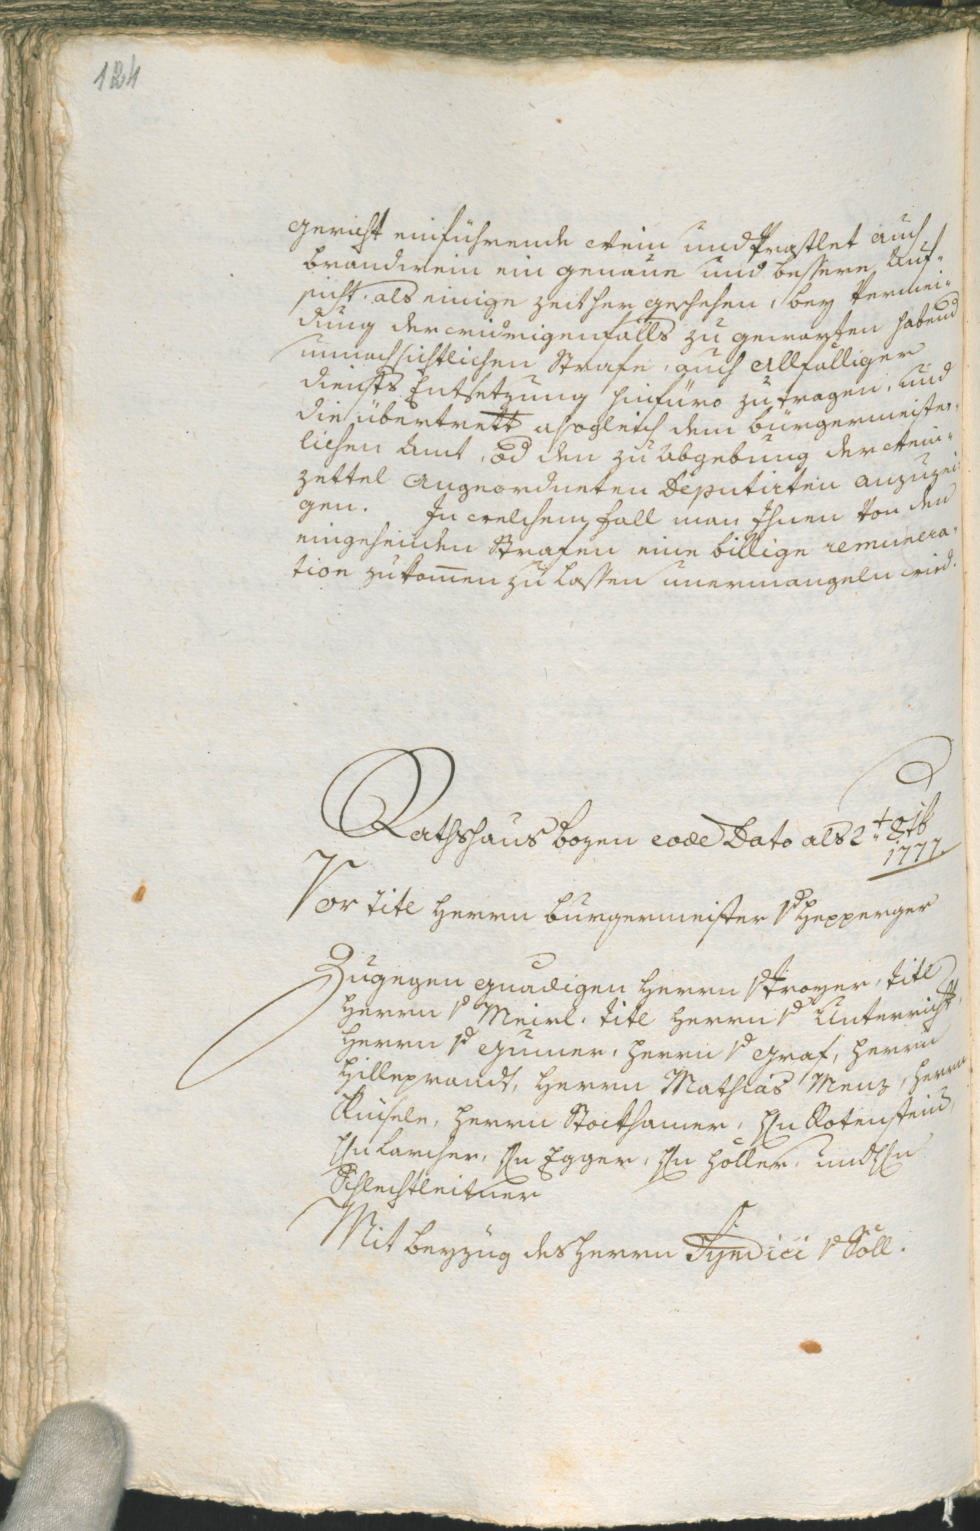 184
gericht einführende Wein und Praslet auch
brandwein ein genaue und bessere Auf-
sicht, als einige Zeit her geschehen, bey Vermei-
dung der widrigenfalls zu gewarten habend
unnachsichtlichen Strafe, auch Allfälliger
diensts Entsetzung hinfüro zu tragen, und
die übertrett alsogleich dem burgermeister-
lichen Amt, od den zu Abgebung der Wein-
zettel Angeordneten Deputirten anzuzei-
gen. In welchem fall man Ihnen von den
eingehenden Strafen eine billige remunera-
tion zukomen zu lassen unermangeln wird.
Rathshaus bozen eode Dato als 2t 8ber
1777.
Vor titl Herrn burgermeister v Hepperger
Zugegen gnädigen Herrn v Troyer, titl
Herrn v Meirl. titl Herrn v Unterricht,
Herrn v Gumer, Herrn v Graf, Herrn
Hilleprandt, Herrn Mathias Menz, Herrn
Kusele, Herrn Stockhamer, Hn Rotenstein,
Hn Larcher, Hn Egger, Hn Holler, und Hn
Schlechtleitner
Mit beyzug des Herrn Syndici v Söll.